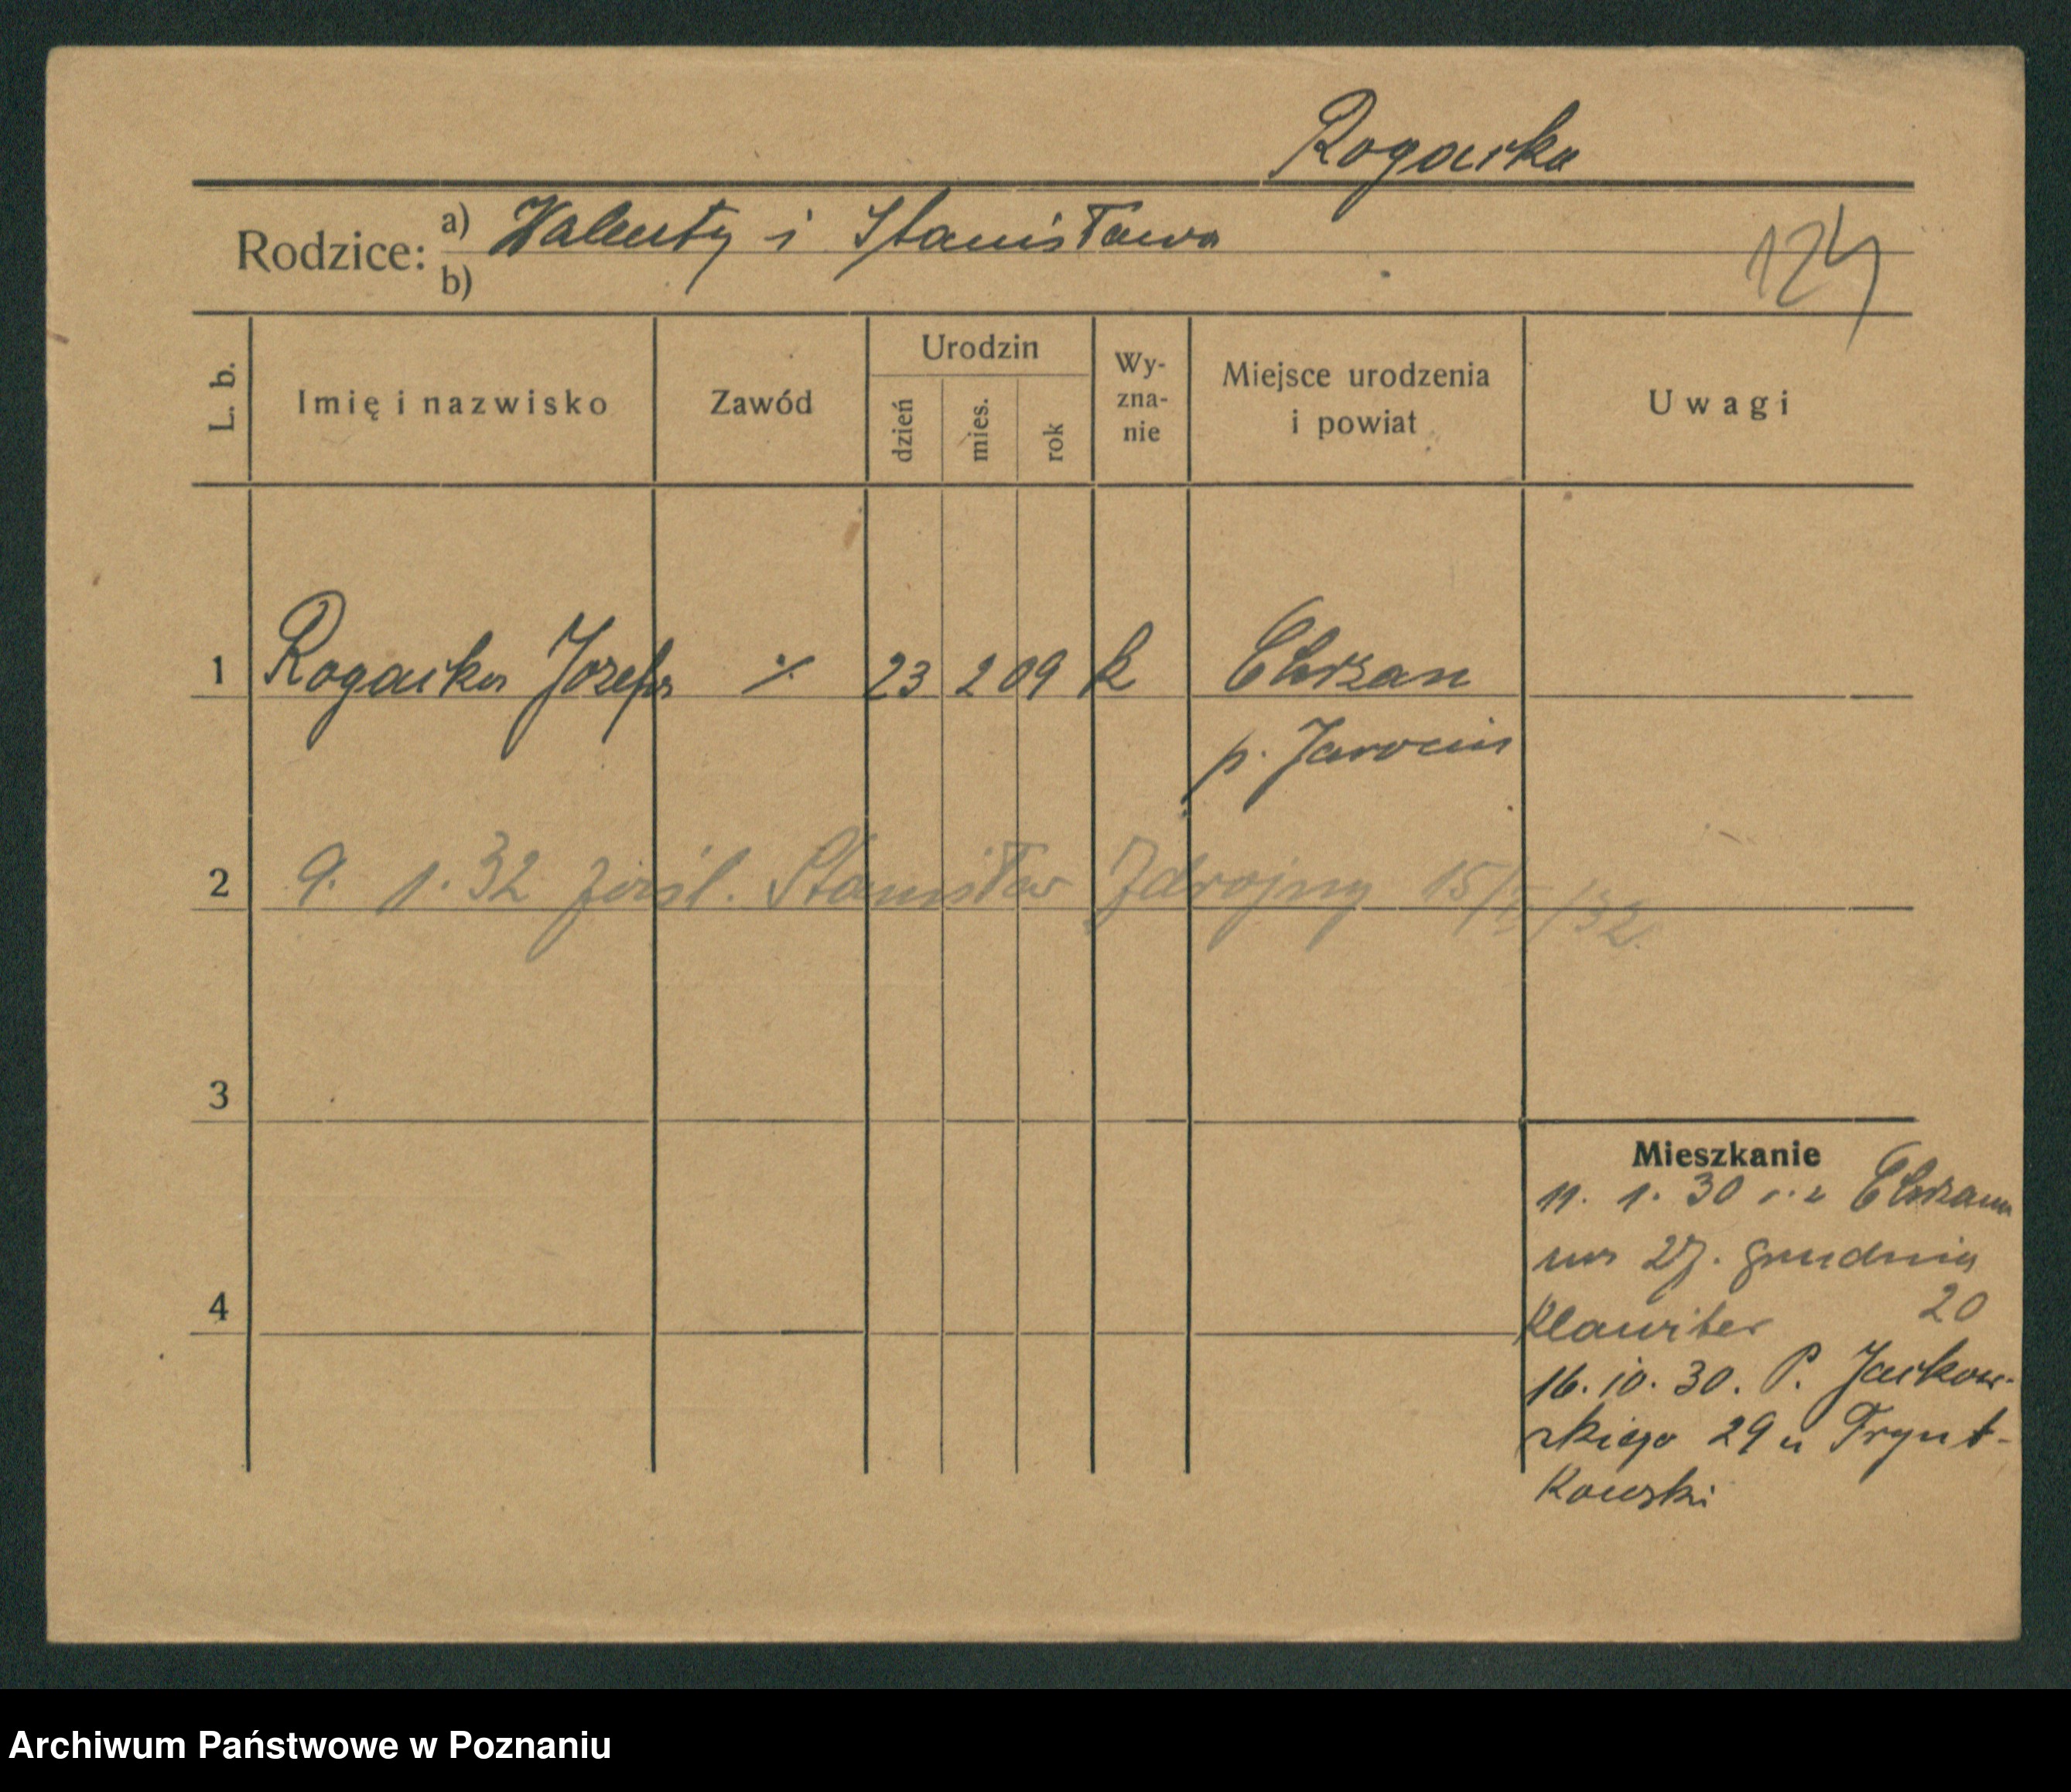 Rogacka
Rodzice: a) Walenty i Stanisława
b)
124
L. b.
Imię i nazwisko
Zawód
Urodzin
dzień
mies.
rok
Wy-
zna-
nie
Miejsce urodzenia
i powiat
Uwagi
1 Rogacka Józefa ./. 23 2 09 k Chrzan
p. Jarocin
2 9. 1. 32 Stanisław Zdrojny 15/I/32.
3
4
Mieszkanie
11. 1. 30 Chrzanu
na 27. grudnia
20
Klawiter
16. 10. 30. P. Jackow-
skiego 29 u Frynt-
kowski
Archiwum Państwowe w Poznaniu